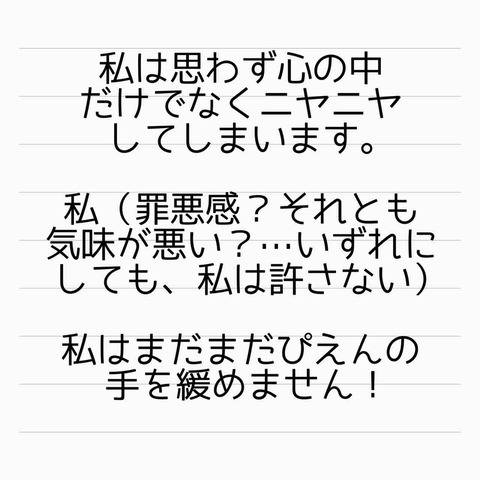 私は思わず心の中
だけでなくニヤニヤ
してしまいます。
私（罪悪感？それとも
気味が悪い？…いずれに
しても、私は許さない）
私はまだまだぴえんの
手を緩めません！